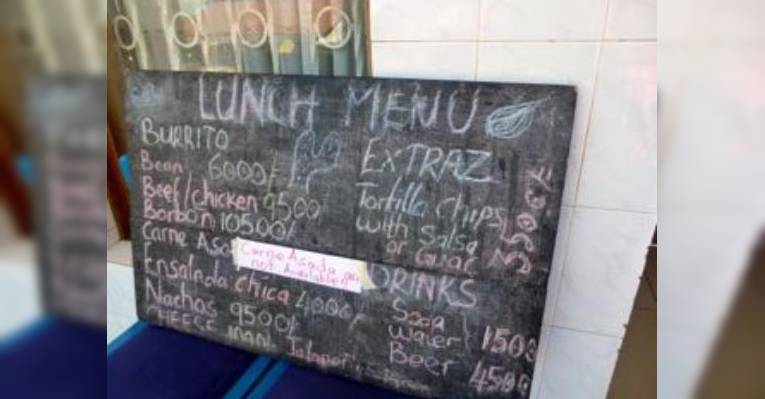 LUNCH MENU
BURRITO
Bean 6000/-
Beef/chicken 9500/
Borbon 10500/-
Carne Asa
Carne Asada
not Available
Ensalada chica 4000/-
Nachos 9500/-
CHEESE
EXTRAZ
Tortilla chips
with Salsa
or Guac
DRINKS
Soda
Water 1500
Beer 4500